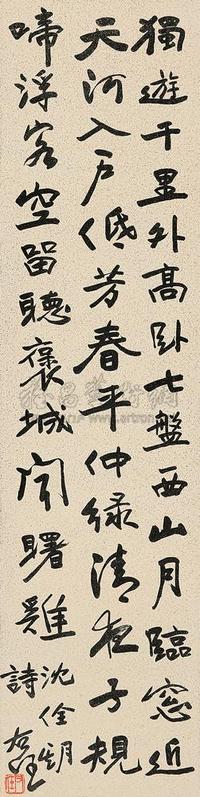 獨遊千里外高臥七盤西山月臨窓近
天河入户低芳春平仲緑清夜子規
啼浮客空留聽褒城聞曙雞
沈佺期
詩